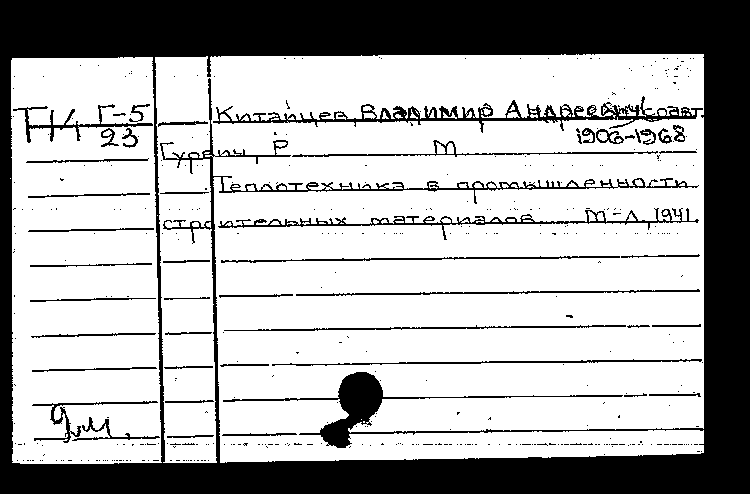 Т14 Г-5
23
Китайцев, Владимир Андреевич, соавт.
1906-1968
Гурвич, Р М
Теплотехника в промышленности
строительных материалов М-Л, 1941.